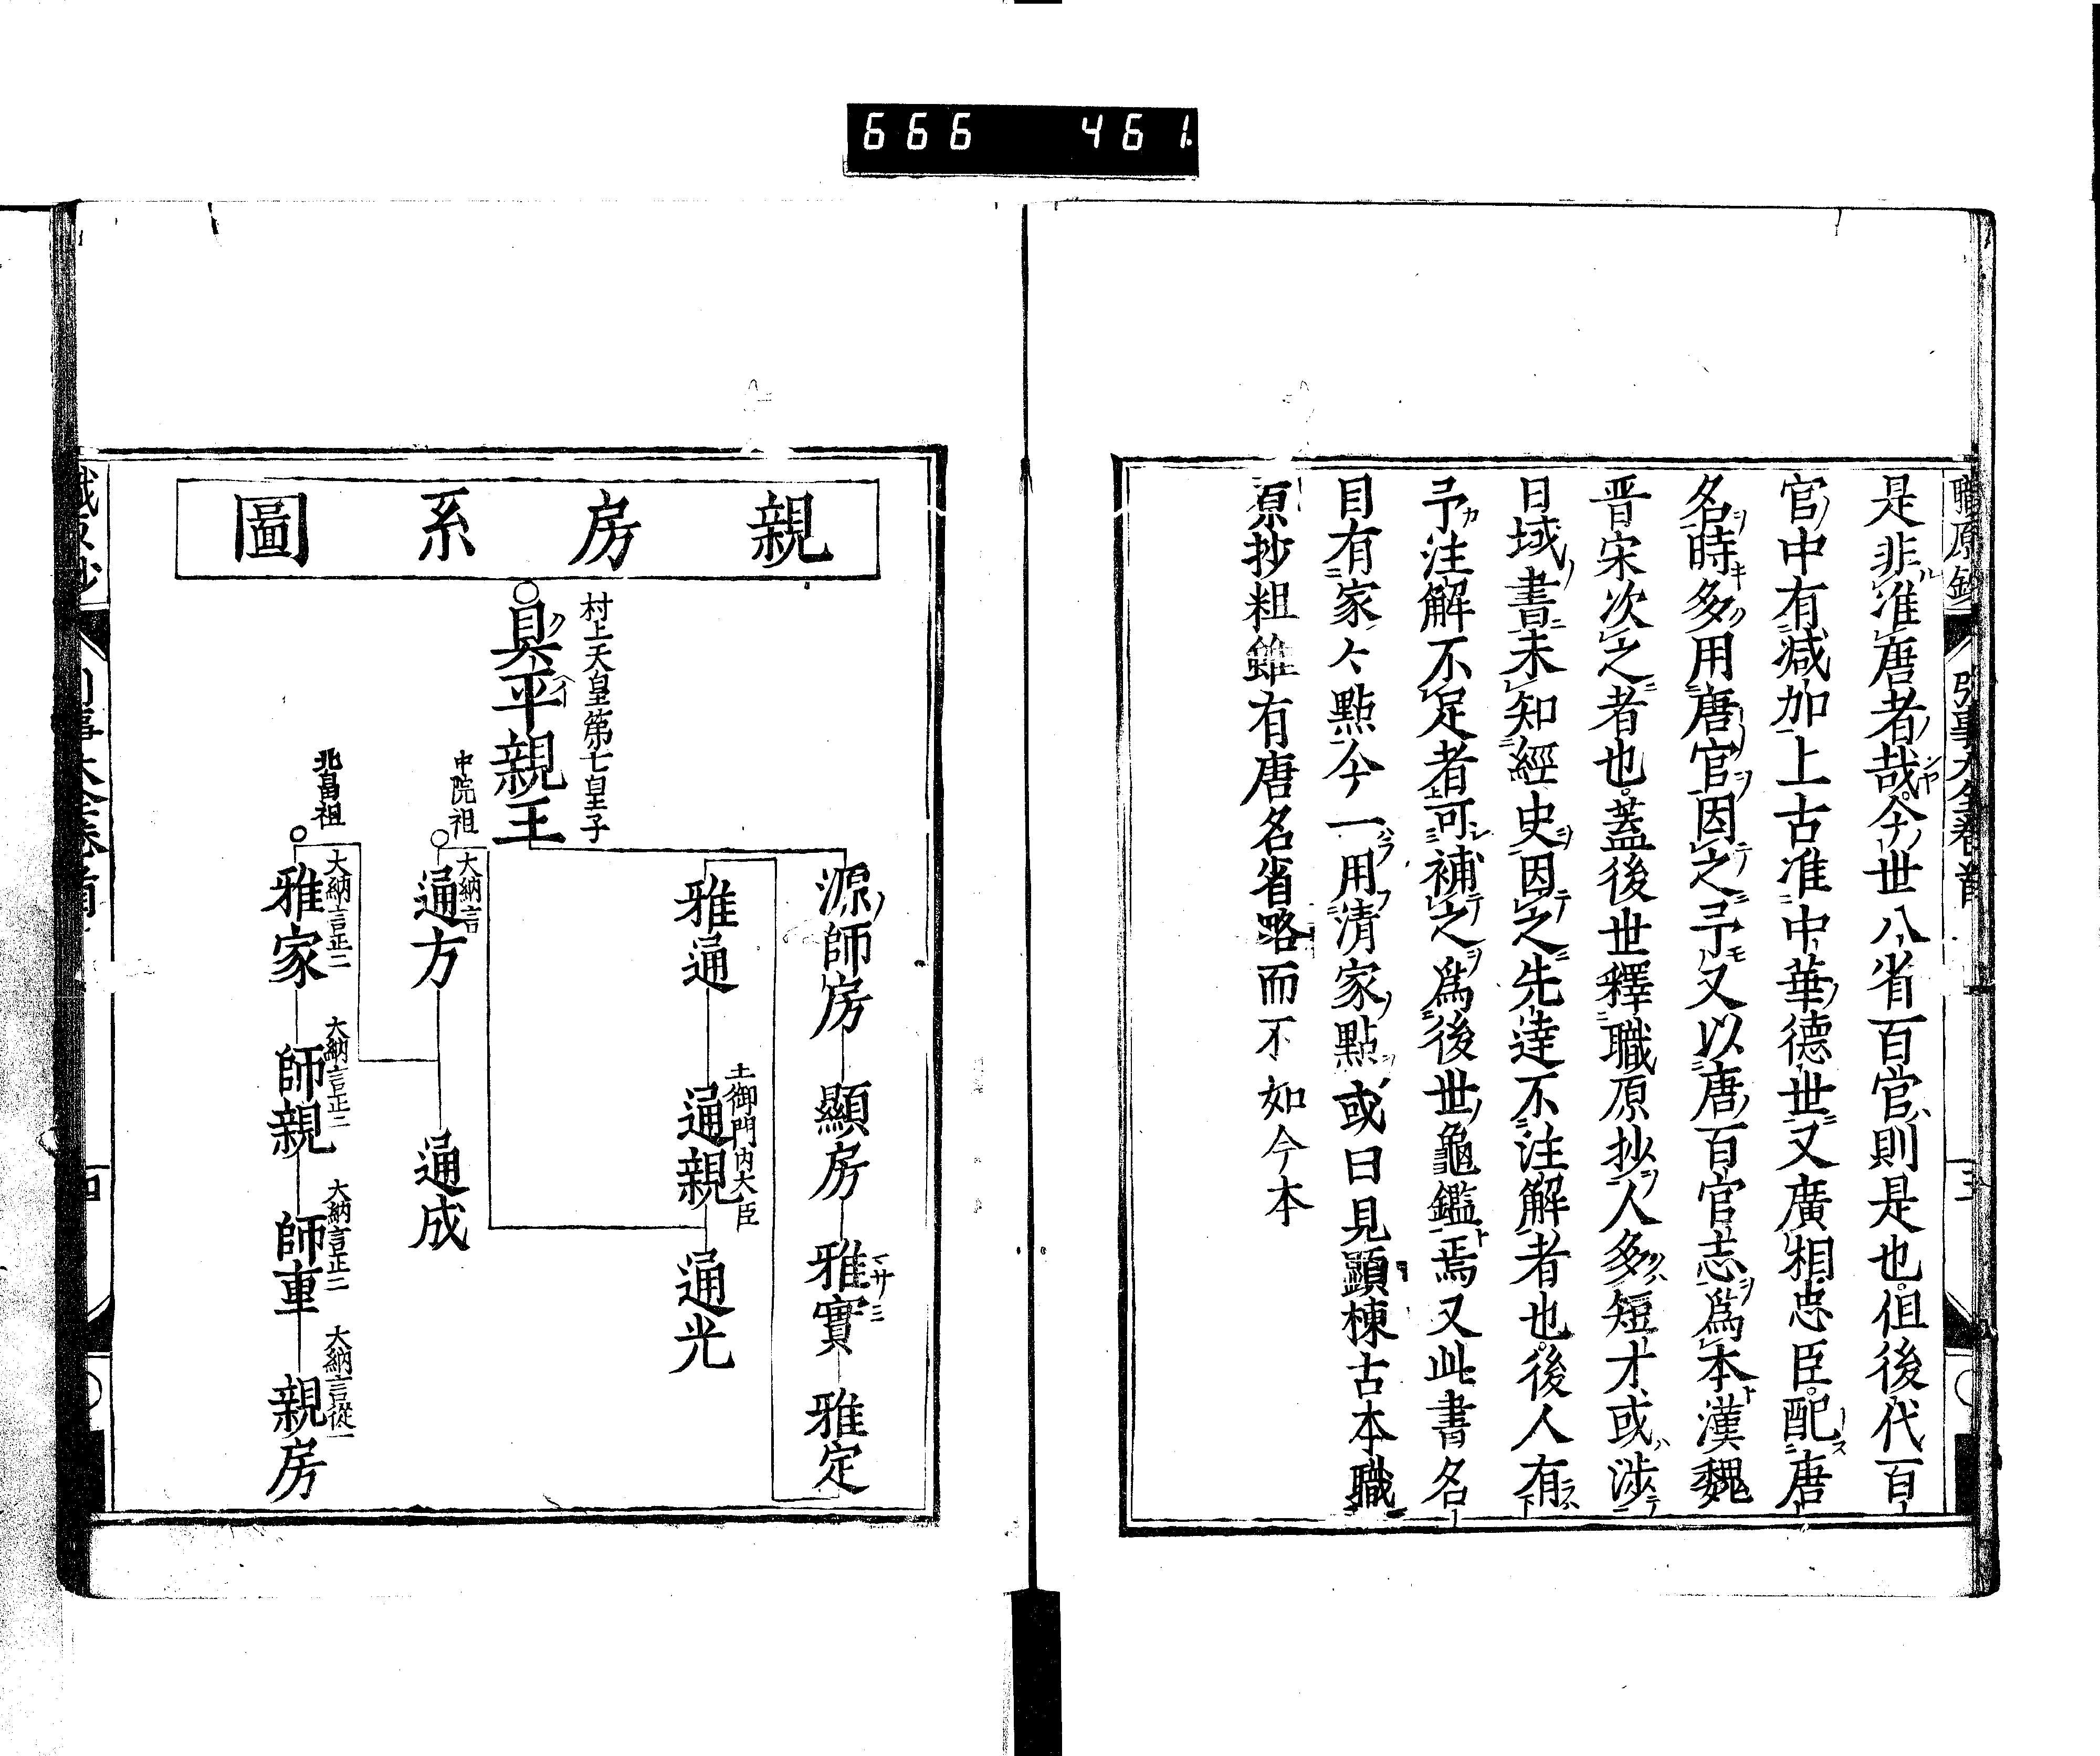 666 461
是非准唐者哉今世八省百官則是也但後代百
官中有減加上古准中華德世又廣相忠臣配唐
名時多用唐官因之予又以唐百官志爲本漢魏
晋宋次之者也蓋後世釋職原抄人多短才或渉
日域書未知經史因之先達不注解者也後人有
予注解不足者可補之爲後世龜鑑焉又此書名
目有家々點今一用清家點或曰見顕棟古本職
原抄粗雖有唐名省略而不如今本
親房系圖
村上天皇第七皇子
具平親王
源師房
顯房
雅實
雅定
雅通
土御門内大臣
通親
通光
中院祖
大納言
通方
通成
北畠祖
大納言正二
雅家
大納言正二
師親
大納言正二
師重
大納言從一
親房